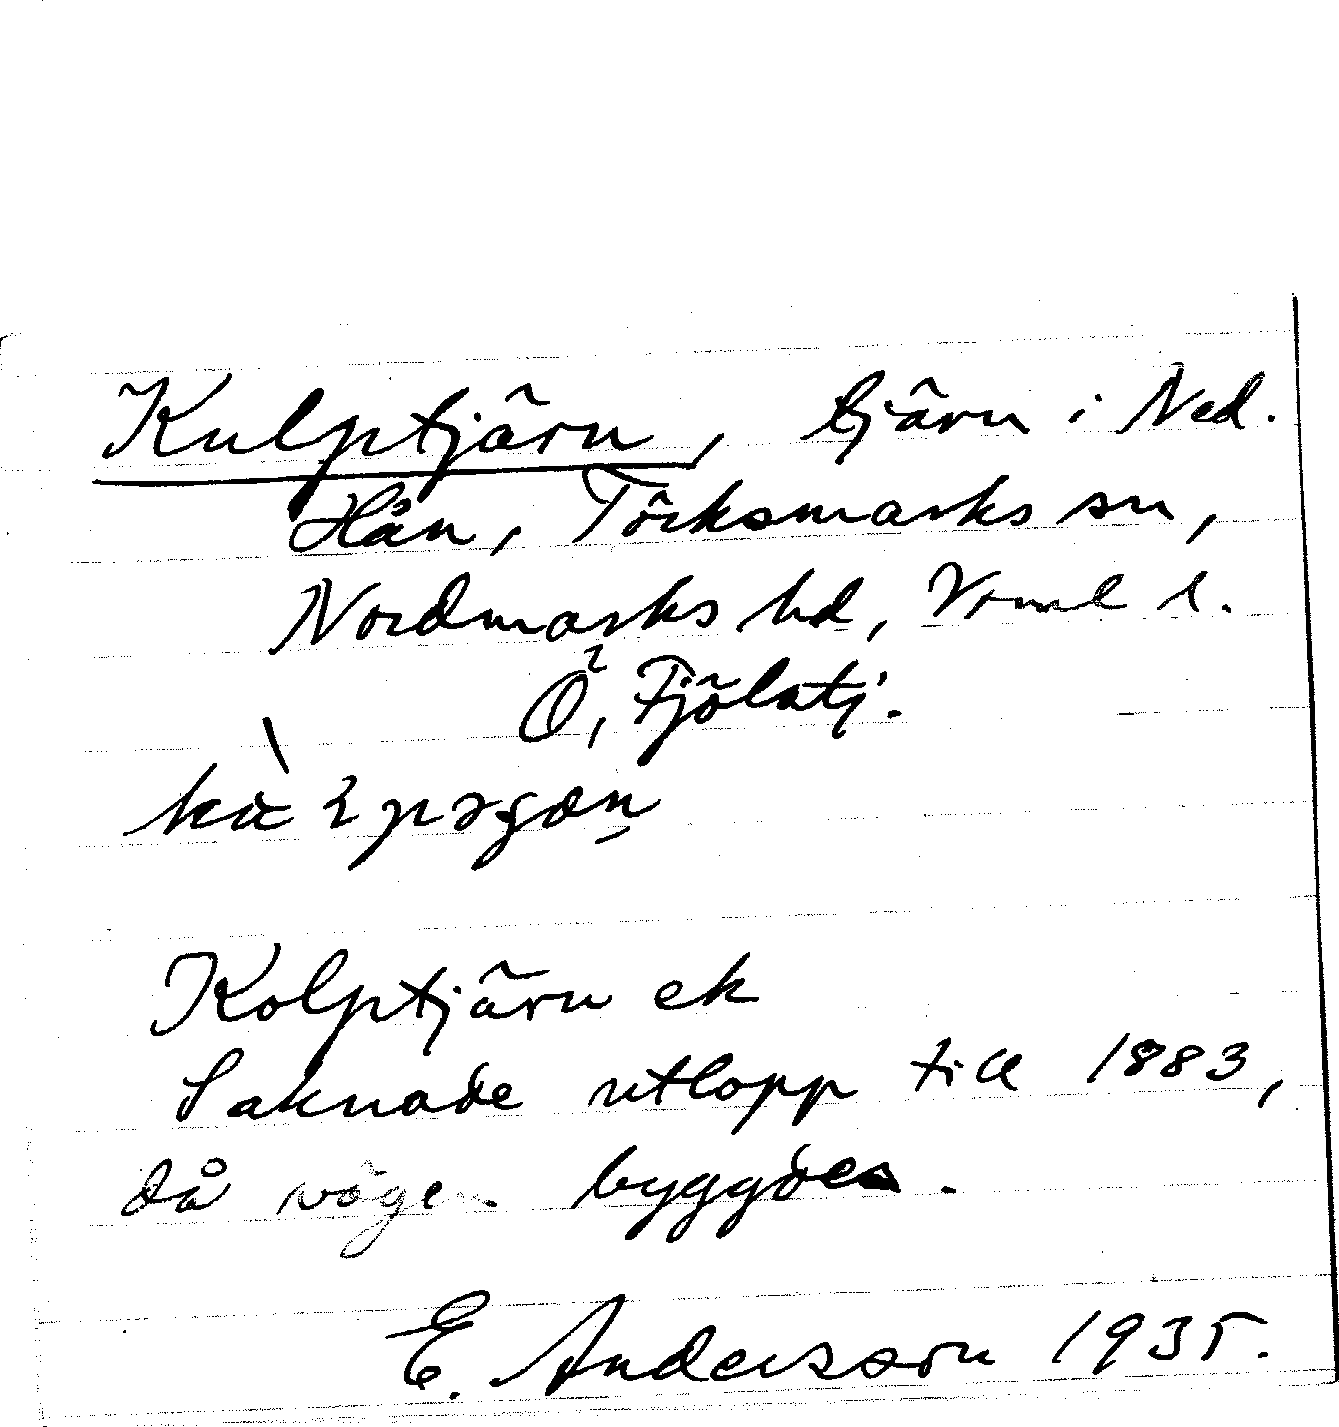 Kulptjärn, tjärn i Ned.
Hån, Töcksmarks sn,
Nordmarks hd, Vrml l.
Ö, Fjölatj.
Kolptjärn ek
Saknade utlopp till 1883,
då vägen byggdes.
E. Andersson 1935.